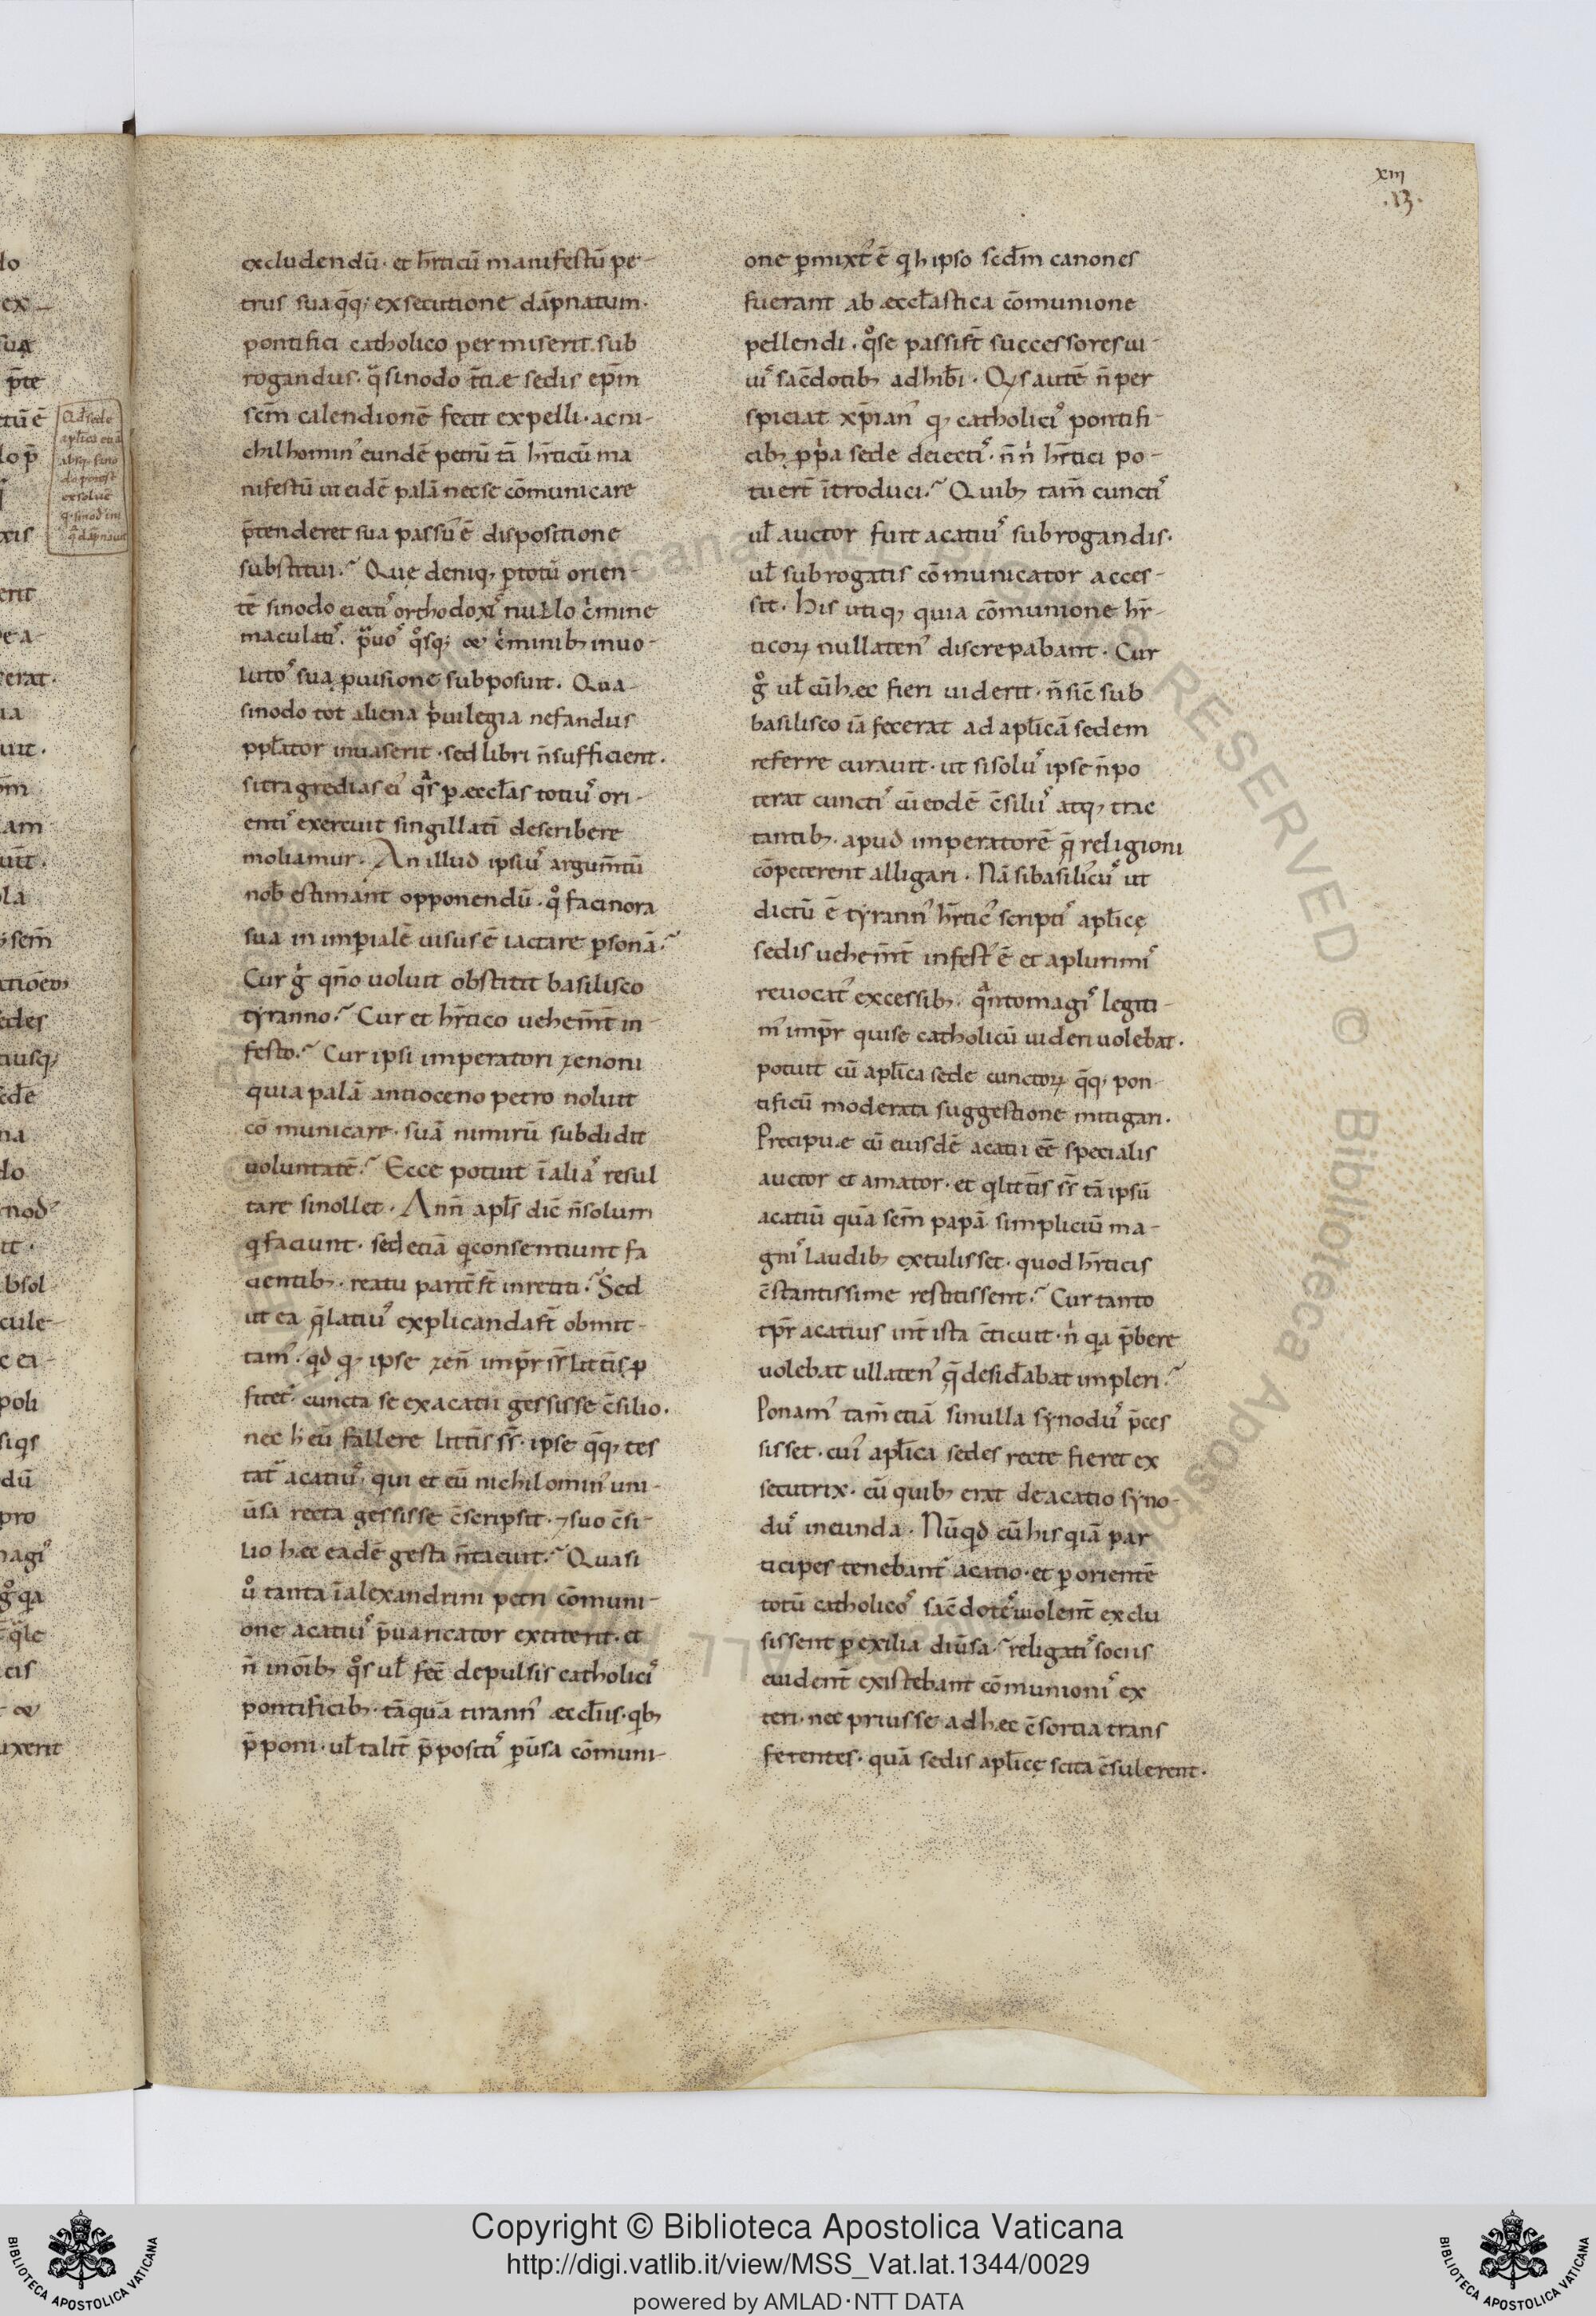 xiii
.13.
excludendū· et hr̄ticū manifestū pe-
trus sua q̄q; exsecutione dāpnatum·
pontifici catholico permiserit sub
rogandus· q̄ sinodo t̄tiæ sedis ep̄m
sc̄m calendionē fecit expelli· ac ni-
chilhomin' eundē petrū tā hr̄ticū ma
nifestū ut eidē palā nec se cōmunicare
p̄tenderet sua passu' ē dispositione
substitui. Que deniq, p totū orien-
tē sinodo eiecti' orthodoxi' nullo c̓mine
maculati'. p̄uo' q°sq; oe' c̓minib; inuo-
luto' sua puisione subposuit. Qua
sinodo tot aliena p̓uilegia nefandus
ppl̄ator inuaserit· sed libri n̄ sufficient·
exercuit singillatī describere
moliamur. An illud ipsiu' argum̄tū
nob̄ estimant opponendū· q° facinora
sua in imp̄ialē uisus ē iactare psonā.
Cur g̓ qn̄o uoluit obstitit basilisco
tyranno. Cur et hr̄tico uehem̄t in-
festo. Cur ipsi imperatori zenoni
quia palā antioceno petro noluit
cō municare· suā nimirū subdidit
uoluntatē. Ecce potuit ī alia' resul
tare si nollet. An n̄ apl̄s dic̄ n̄ solum
q̓ faciunt· sed etiā q̓ consentiunt fa
cientib;· reatu partē st̄ inretiti. Sed
ut ea q̄ latiu' explicanda st̄ obmit-
tam'. qd q; ipse zen̄ imp̄r sr̄ litt̄is p
fitet' cuncta se ex acatii gessisse c̄silio·
nec h eū fallere litt̄is sr̄· ipse q̄q, tes
tat' acatiu', qui et eū nichilomin' uni-
ūsa recta gessisse c̄scripsit· ⁊ suo c̄si-
lio hæc eadē gesta n̄ tacuit. Quasi
u° tanta ī alexandrini petri cōmuni-
one acatiu' p̄uaricator extiterit· et
n̄ in oīb; q°s ul̄ fec̄ depulsis catholici'
pontificib;· tāquā tirann' æccl̄iis· qb;
p̄poni· ul̄ talit̄ p̄positi' pūsa cōmuni-
one pmixt' ē q̓ h ipso secdm̄ canones
fuerant ab æccl̄astica cōmunione
pellendi· q°se passist̄ successores ui-
ui' sac̄dotib; adhib̄i. Q̓s autē n̄ per
spiciat xp̄ian' q; catholici' pontifi-
cib; ppa sede deiecti'· n̄ n̓ hr̄tici po-
tuert̄ ītroduci. Quib; tam̄ cuncti'
ul̄ auctor fuit acatiu' subrogandis·
ul̄ subrogatis cōmunicator acces-
sit· his utiq, quia cōmunione hr̄-
ticoꝝ nullaten' discrepabant· Cur
g° ul̄ cū hæc fieri uiderit· n̄ sic̄ sub
basilisco iā fecerat ad apl̄icā sedem
referre curauit· ut si solu' ipse n̄ po
terat cuncti' cū eodē c̄siliu' atq, trac
tantib;· apud imperatorē q̄ religioni
cōpeterent alligari· Nā si basilicu' ut
dictū ē tyrann' hr̄tic' scripti' apl̄icę
sedis uehem̄t infest' ē et a plurimi'
reuocat' excessib;· q̄nto magi' legiti-
m' imp̄r qui se catholicū uideri uolebat·
potuit cū apl̄ica sede cunctoꝝ q̄q, pon-
tificū moderata suggestione mitigari·
Precipuæ cū euisdē acatii ēe specialis
auctor et amator· et q̓ litt̄is sr̄ tā ipsū
acatiū quā scm̄ papā simpliciū ma-
gni' laudib; extulisset· quod hr̄ticis
c̄stantissime restitissent. Cur tanto
tp̄r acatius int̄ ista c̄ticuit· n̓ q̓a p̄bere
uolebat ullaten' q̄ desid̄abat impleri.
Ponam' tam̄ etiā si nulla synodu' p̄ces
sisset· cui' apl̄ica sedes recte fieret ex
secutrix· cū quib; erat de acatio syno-
du' ineunda· Nūqd cū his q̓ iā par
ticipes tenebant' acatio· et p orientē
totū catholico' sac̄dote' uiolent̄ exclu
sissent p exilia diūsa. religati' sociis
euident̄ existebant cōmunioni' ex
teri· nec prius se ad hæc c̄sortia trans
ferentes· quā sedis apl̄icę scita c̄sulerent·
Copyright © Biblioteca Apostolica Vaticana
http://digi.vatlib.it/view/MSS_Vat.lat.1344/0029
powered by AMLAD·NTT DATA
BIBLIOTECA APOSTOLICA VATICANA
BIBLIOTECA APOSTOLICA VATICANA